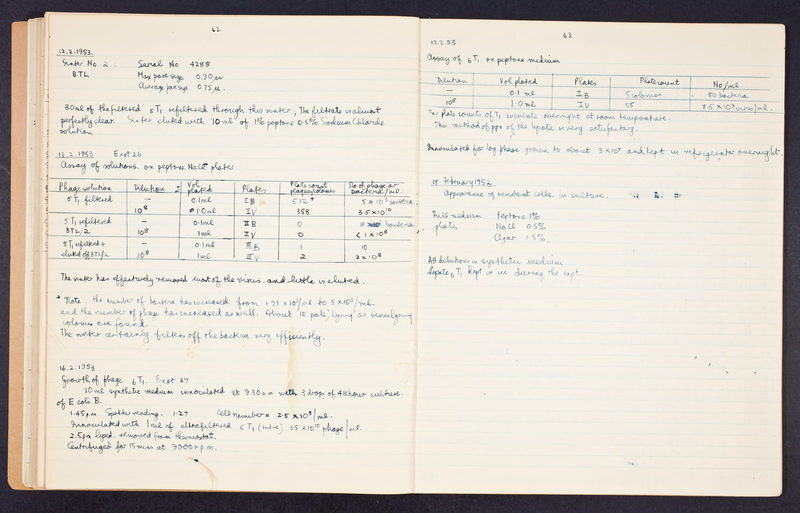 62
12.2.1953.
Sinter No. 2 : Serial No 4288
BTL Max pore size 0.90 µ
Average pore size 0.75 µ.
30ml of the filtered 5 T1 refiltered through this sinter, The filtrate is almost
perfectly clear. Sinter eluted with 10 ml of 1% peptone 0.5% Sodium Chloride
solution
13.2.1953 Expt 26
Assay of solutions. on peptone NaCl plates
Phage solution Dilution Vol plated Plates Plate count plaques/colonies No of phage or bacteria/ml.
5 T1 filtered — 0.1ml I B 512* 5 x 10³ bacteria
10⁸ 1.0ml I V 358 3.5 x 10¹⁰
5 T1 refiltered — 0.1ml II B 0 0 bacteria
BTL/2 10⁸ 1ml II V 0 < 1 x 10⁸
5 T1 refiltered + — 0.1ml III B 1 10
eluted off BTL/2 10⁸ 1ml III V 2 2 x 10⁸
The sinter has effectively removed most of the virus. and little is eluted.
* Note: the number of bacteria has increased from to 5 x 10³/ml.
and the number of phage has increased as well. About 10 pale, "lying" or
colonies are found.
The sinter certainly filters off the bacteria very efficiently.
16.2.1953
Growth of phage 6 T1. Expt 27
10ml synthetic medium innoculated at 9.30 a.m with 3 drops of 48 hour culture.
of E coli B.
1.45 p.m Spekker reading. 1.27 Cell number = 2.5 x 10⁸/ml.
Innoculated with 1ml of ultrafiltered 5 T1 (titre) 3.5 x 10¹⁰ phage/ml.
2.5 pm lysed. removed from thermostat.
Centrifuged for 15 mins at 3000 r.p.m.
63
17.2.53
Assay of 6 T1 on peptone medium
Dilution Vol plated Plates Plate count No/ml.
— 0.1 ml I B 5 colonies 50 bacteria
10⁸ 1.0 ml I V 85 8.5 x 10⁹ virus/ml.
For plate counts of T1 incubate overnight at room temperature.
This method of ppn of the lysate is very satisfactory.
Innoculated for log phase grown to about 3 x 10⁷ and kept in refrigerator overnight.
18 February 1952
Appearance of resistant cells. in culture.
Full medium Peptone 1%
plates NaCl 0.5%
Agar 1.5%.
All dilutions in synthetic medium
Lysate 6 T1 kept in ice during the expt.